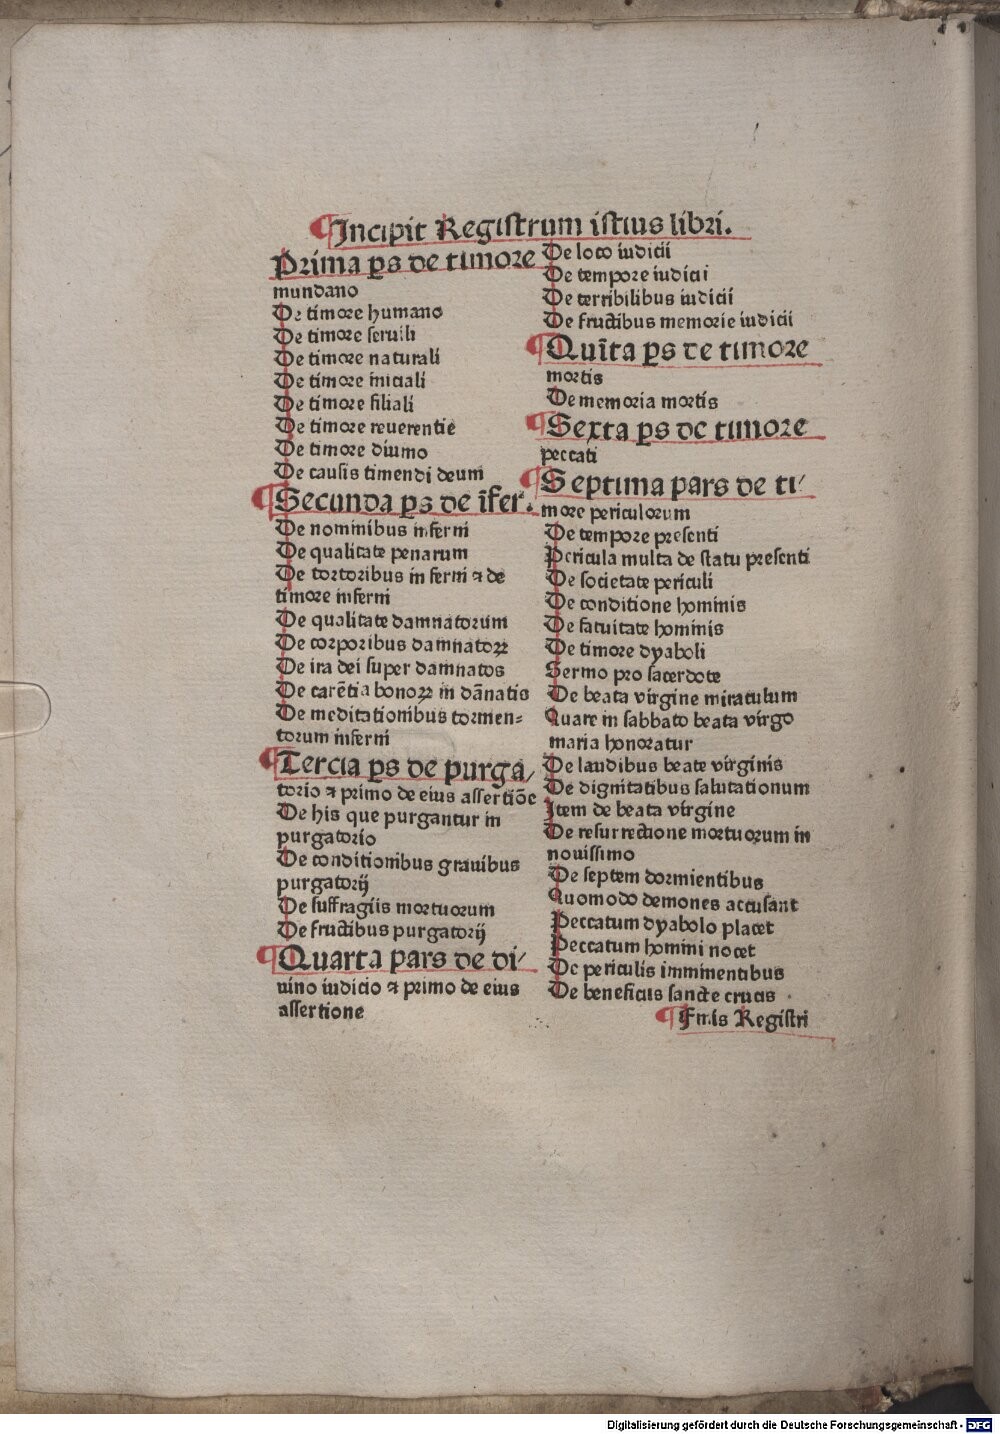 ¶Incipit Registrum istius libri.
Prima ꝑs de timore
mundano
De timore humano
De timore seruili
De timore naturali
De timore iniciali
De timore filiali
De timore reuerentie
De timore diuino
De causis timendi deum
¶Secunda ꝑs de īfer.
De nominibus inferni
De qualitate penarum
De tortoribus inferni ⁊ de
timore inferni
De qualitate damnatorum
De corporibus damnatoꝝ
De ira dei super damnatos
De carētia bonoꝝ in dānatis
De meditationibus tormen-
torum inferni
¶Tercia ꝑs de purga/
torio ⁊ primo de eius assertiōe
De his que purgantur in
purgatorio
De conditionibus grauibus
purgatorij
De suffragiis mortuorum
De fructibus purgatorij
¶Quarta pars de di/
uino iudicio ⁊ primo de eius
assertione
De loco iudicii
De tempore iudicii
De terribilibus iudicii
De fructibus memorie iudicii
¶Quīta ꝑs de timore
mortis
De memoria mortis
¶Sexta ꝑs de timore
peccati
¶Septima pars de ti/
more periculorum
De tempore presenti
Pericula multa de statu presenti
De societate periculi
De conditione hominis
De fatuitate hominis
De timore dyaboli
Sermo pro sacerdote
De beata virgine miraculum
Quare in sabbato beata virgo
maria honoratur
De laudibus beate virginis
De dignitatibus salutationum
Item de beata virgine
De resurrectione mortuorum in
nouissimo
De septem dormientibus
Quomodo demones accusant
Peccatum dyabolo placet
Peccatum homini nocet
De periculis imminentibus
De beneficiis sancte crucis
¶Finis Registri
Digitalisierung gefördert durch die Deutsche Forschungsgemeinschaft - DFG